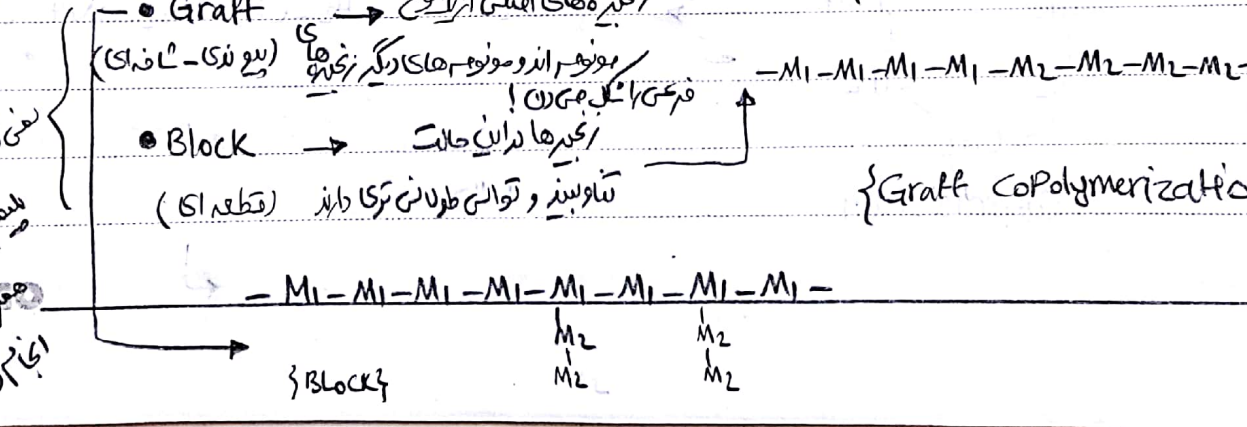 — • Graft →
(پیوندی - شاخه‌ای) مونومر اند و مونومر های دیگر زنجیره های
فرعی را شکل می دن!
-M1-M1-M1-M1-M2-M2-M2-M2-
• Block → زنجیر ها در این حالت
(قطعه ای) متناوبند و توالی طولانی تری دارند
{Graft CoPolymerizatio
- M1 - M1 - M1 - M1 - M1 - M1 - M1 - M1 -
M2 M2
M2 M2
{BLock}
انجام